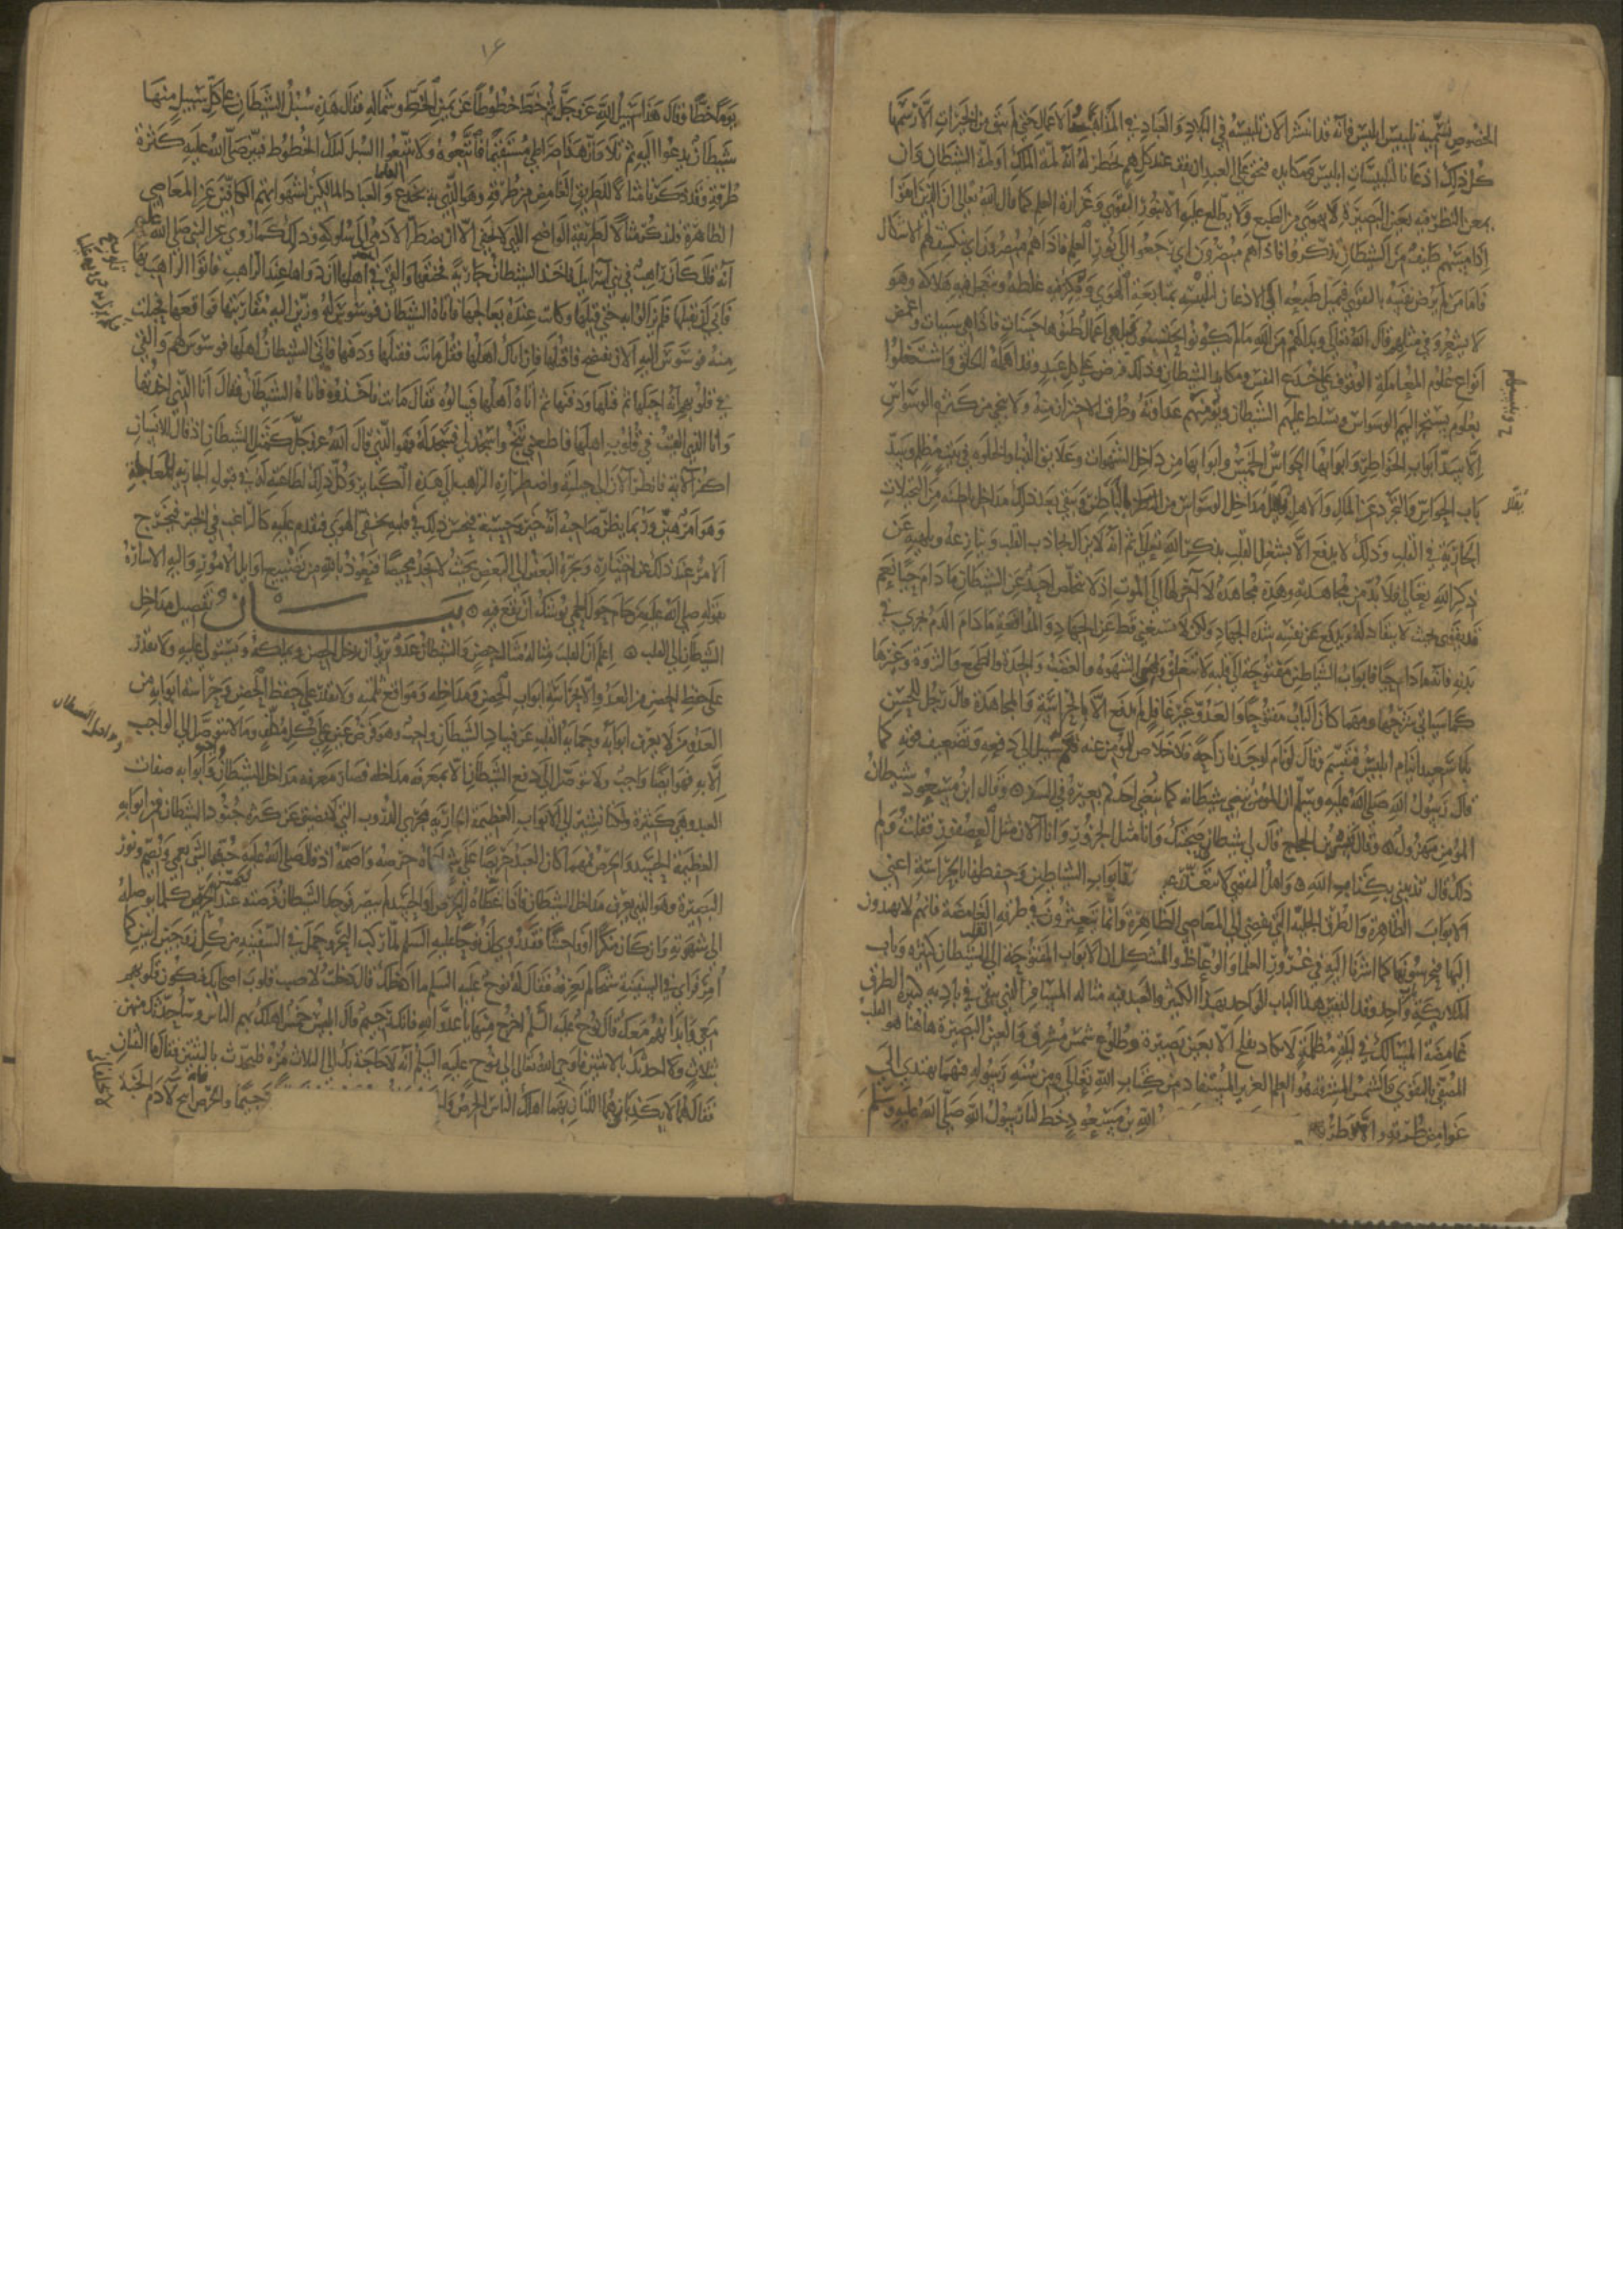 الخصوص نسميه تلبيس ابليس فانه قد انتشر الان تلبيسه في البلاد والعباد في المذاهب والاعمال حتى لم يبق من الخيرات الا رسمها
كل ذلك اذعانا لتلبيسات ابليس ومكايده فحق على العبد ان يقف عند كل هم يخطر له انه لمة الملك او لمة الشيطان وان
يمعن النظر فيه بعين البصيرة لا بهوى من الطبع ولا يطلع عليه الا بنور التقوى وغزارة العلم كما قال الله تعالى ان الذين اتقوا
اذا مسهم طيف من الشيطان تذكروا فاذا هم مبصرون اي رجعوا الى نور العلم فاذا هم مبصرون اي ينكشف لهم الاشكال
فاما من لم يرض نفسه بالتقوى فيميل طبعه الى الاذعان لتلبيسه بمتابعة الهوى ويكثر فيه غلطه ويتعجل فيه هلاكه وهو
لا يشعر وفي مثلهم قال الله تعالى وبدا لهم من الله ما لم يكونوا يحتسبون قيل هي اعمال ظنوها حسنات فاذا هي سيات واغمض
انواع علوم المعاملة الوقوف على خدع النفس ومكايد الشيطان وذلك فرض على كل عبد وقد اهمله الخلق واشتغلوا
بعلوم يستجر اليهم الوسواس ويسلط عليهم الشيطان وينسيهم عداوته وطرق الاحتراز منه ولا ينجي من كثرة الوسواس
الا سد ابواب الخواطر وابوابها الحواس الخمس وابوابها من داخل الشهوات وعلايق الدنيا والخلوة في بيت مظلم يسد
باب الحواس والتجرد عن المال والاهل يقلل مداخل الوسواس من الباطن ويبقى بعد ذلك مداخل باطنة من التخيلات
الجارية في القلب وذلك لا يدفع الا بشغل القلب بذكر الله تعالى ثم انه لا يزال يجاذب القلب وينازعه ويلهيه عن
ذكر الله تعالى فلا بد من مجاهدته وهذه مجاهدة لا اخر لها الى الموت اذ لا يتخلص احد عن الشيطان ما دام حيا نعم
قد يقوى بحيث لا ينقاد له ويدفع عن نفسه شره بالجهاد ولكن لا يستغني قط عن الجهاد والمدافعة ما دام الدم يجري في
بدنه فانه ما دام حيا فابواب الشياطين مفتوحة الى قلبه لا تنغلق وهي الشهوة والغضب والحدة والطمع والشره وغيرها
كما سياتي شرحها ومهما كان الباب مفتوحا والعدو غير غافل لم يدفع الا بالحراسة والمجاهدة قال رجل للحسن
يا با سعيد اينام ابليس فتبسم وقال لو نام لوجدنا راحة فلا خلاص للمؤمن عنه نعم له سبيل الى دفعه وتضعيف قوته كما
قال رسول الله صلى الله عليه وسلم ان المؤمن ينضي شيطانه كما ينضي احدكم بعيره في السفر وقال ابن مسعود شيطان
المؤمن مهزول وقال قيس بن الحجاج قال لي شيطاني دخلت فيك وانا مثل الجزور وانا الان مثل العصفور فقلت ولم
ذلك قال تذيبني بكتاب الله واهل التقوى لا يتعذر عليهم سد ابواب الشياطين وحفظها بالحراسة اعني
الابواب الظاهرة والطرق الجلية التي يفضي الى المعاصي الظاهرة وانما يتعثرون في طرقه الغامضة فانهم لا يهتدون
اليها فيحرسونها كما اشرنا اليه في غرور العلما والوعاظ والمشكل ان الابواب المفتوحة الى القلب للشيطان كثيرة وباب
الملايكة واحد وقد التبس هذا الباب الواحد بهذا الكثير والعبد فيه مثاله المسافر الذي يبقى في بادية كثيرة الطرق
غامضة المسالك في ليلة مظلمة لا يكاد يفلح الا بعين بصيرة وطلوع شمس مشرق والعين البصيرة هاهنا هو القلب
المصفى بالتقوى والشمس المشرقة هو العلم الغزير المستفاد من كتاب الله تعالى ومن سنة رسوله فيهما يهتدي الى
غوامض طرقه والا فطرقه الله بن مسعود خط لنا رسول الله صلى الله عليه وسلم
يقلل
١٤
يوما خطا وقال هذا سبيل الله عز وجل ثم خط خطوطا عن يمين الخط وشماله فقال هذه سبل الشيطان على كل سبيل منها
شيطان يدعوا اليه ثم تلا وان هذا صراطي مستقيما فاتبعوه ولا تتبعوا السبل لتلك الخطوط فبين صلى الله عليه كثرة
طرقه وقد ذكرنا مثالا للطريق الغامض من طرقه وهو الذي به يخدع العلما والعباد المالكين لشهواتهم الكافين عن المعاصي
الظاهرة فلنذكر مثالا لطريقه الواضح الذي لا يخفى الا ان يضطر الادمي الى سلوكه وذلك كما روي عن النبي صلى الله عليه
انه قال كان راهب في بني اسرايل فاخذ الشيطان جارية فخنقها والقى في قلوب اهلها ان دواها عند الراهب فاتوا الراهب بها
فابى ان يقبلها فلم يزالوا به حتى قبلها وكانت عنده يعالجها فاتاه الشيطان فوسوس له وزين اليه مقاربتها فواقعها فحبلت
منه فوسوس اليه الان تفتضح فاقتلها فان اتاك اهلها فقل ماتت فقتلها ودفنها فاتى الشيطان اهلها فوسوس لهم والقى
في قلوبهم انه احبلها ثم قتلها ودفنها ثم اتاه اهلها فسالوه فقال ماتت فاخذوه فاتاه الشيطان فقال انا الذي اخذتها
وانا الذي القيت في قلوب اهلها فاطعني تنج واسجد لي فسجد له وهو الذي قال الله عز وجل كمثل الشيطان اذ قال للانسان
اكفر الاية فانظر الان الى حيلته واضطراره الراهب الى هذه الكباير وكل ذلك لطاعته له في قبوله الجارية للمعالجة
وهو امر هين وربما يظن صاحبه انه خير وحسنة فيحسن ذلك في قلبه بخفي الهوى فيقدم عليه كالراغب في الخير فيخرج
الامر بعد ذلك عن اختياره ويجره البعض الى البعض بحيث لا يجد محيصا فنعوذ بالله من تضييع اوايل الامور واليه الاشارة
بقوله صلى الله عليه من حام حول الحمى يوشك ان يقع فيه بيان تفصيل مداخل
الشيطان الى القلب اعلم ان القلب مثاله مثال الحصن والشيطان عدو يريد ان يدخل الحصن ويملكه ويستولي عليه ولا يقدر
على حفظ الحصن من العدو الا بحراسة ابواب الحصن ومداخله ومواقع ثلمه ولا يقدر على حفظ الحصن وحراسة ابوابه من
العدو من لا يعرف ابوابه وحماية القلب عن فساد الشيطان واجب وهو فرض عين على كل مكلف وما لا يتوصل الى الواجب
الا به فهو ايضا واجب ولا يتوصل الى دفع الشيطان الا بمعرفة مداخله فصار معرفة مداخل الشيطان وابوابه صفات
العبد وهي كثيرة ولكنا نشير الى الابواب العظيمة الجارية مجرى الدروب التي لا تضيق عن كثرة جنود الشيطان فمن ابوابه
العظيمة الحسد والحرص فمهما كان العبد حريصا على شي اعماه حرصه واصمه اذ قال صلى الله عليه حبك الشي يعمي ويصم ونور
البصيرة وهو الذي يعرف مداخل الشيطان فاذا غطاه الحرص والحسد لم يبصر فيجد الشيطان فرصة فيحسن عند الحريص كلما يوصله
الى شهوته وان كان منكرا او فاحشا فقد روي ان نوحا عليه السلم لما ركب البحر وحمل في السفينة من كل زوجين اثنين كما
امر فراى في السفينة شيخا لم يعرفه فقال له نوح عليه السلم ما ادخلك قال دخلت لاصيب قلوب اصحابك فيكون قلوبهم
معي وابدانهم معك قال نوح عليه السلم اخرج منها يا عدو الله فانك رجيم قال ابليس خمس اهلك بهم الناس وساحدثك منهن
بثلاث ولا احدثك بالاثنتين فاوحى الله تعالى الى نوح عليه السلم انه لا حاجة بك الى الثلاث مره فليحدثك بالثنتين فقال ما الثنتان
فقال هما لا يكذبان هما اللتان بهما اهلك الناس الحرص والحسد رجيما والحرص فانه ابيح لادم الجنة
مداخل الشيطان